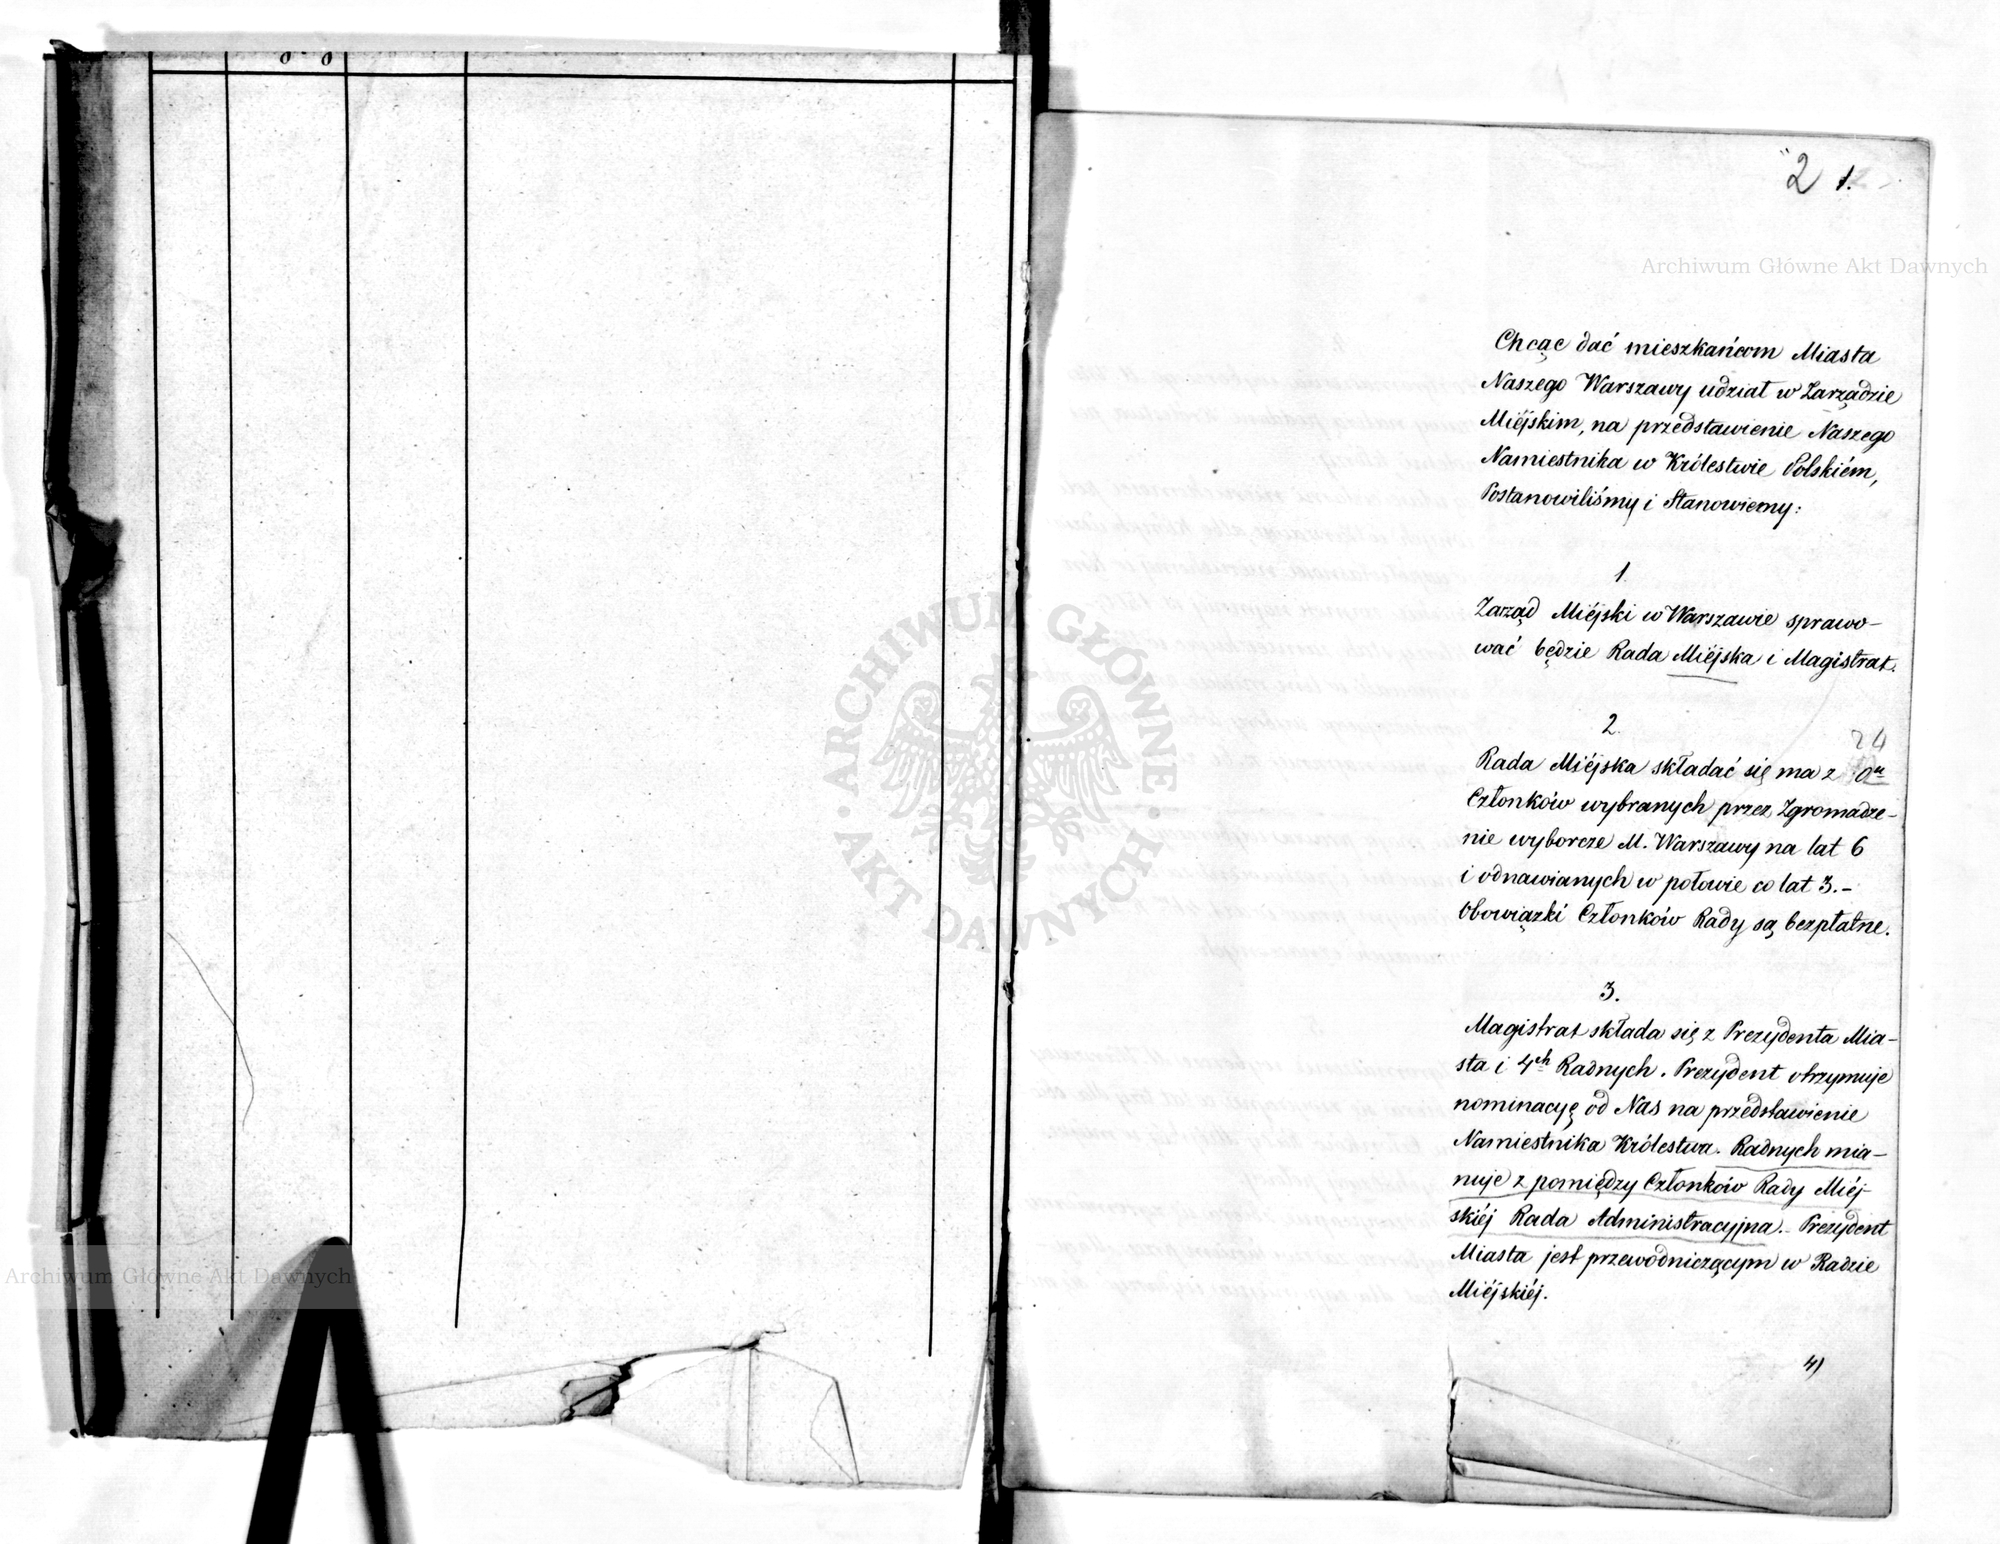 2 1.
Archiwum Główne Akt Dawnych
Chcąc dać mieszkańcom Miasta
Naszego Warszawy udział w Zarządzie
Miéjskim, na przedstawienie Naszego
Namiestnika w Królestwie Polskiém,
Postanowiliśmy i Stanowiemy:
1.
Zarząd Miéjski w Warszawie sprawo-
wać będzie Rada Miéjska i Magistrat.
2.
24
Rada Miéjska składać się ma z
Członków wybranych przez Zgromadze-
nie wyborcze M. Warszawy na lat 6
i odnawianych w połowie co lat 3.-
Obowiązki Członków Rady są bezpłatne.
3.
Magistrat składa się z Prezydenta Mia-
sta i 4ch Radnych. Prezydent otrzymuje
nominacyę od Nas na przedstawienie
Namiestnika Królestwa. Radnych mia-
nuje z pomiędzy Członków Rady Miéj-
skiéj Rada Administracyjna.- Prezydent
Miasta jest przewodniczącym w Radzie
Miéjskiéj.
4)
ARCHIWUM GŁÓWNE
AKT DAWNYCH
Archiwum Główne Akt Dawnych